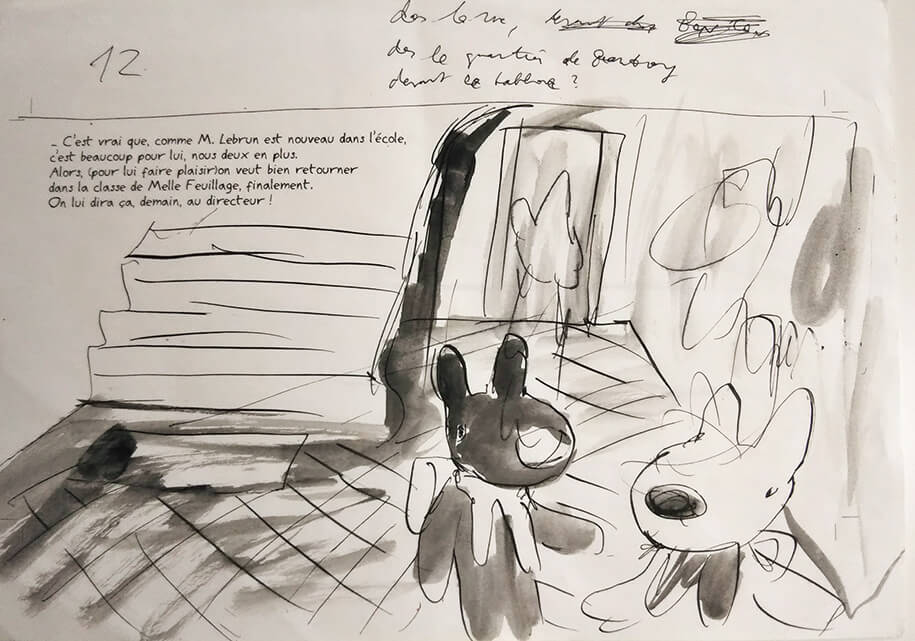 12.
dans la rue,
dans le quartier de
devant le tableau ?
_ C'est vrai que, comme M. Lebrun est nouveau dans l'école,
c'est beaucoup pour lui, nous deux en plus.
Alors, (pour lui faire plaisir) on veut bien retourner
dans la classe de Melle Feuillage, finalement.
On lui dira ça, demain, au directeur !